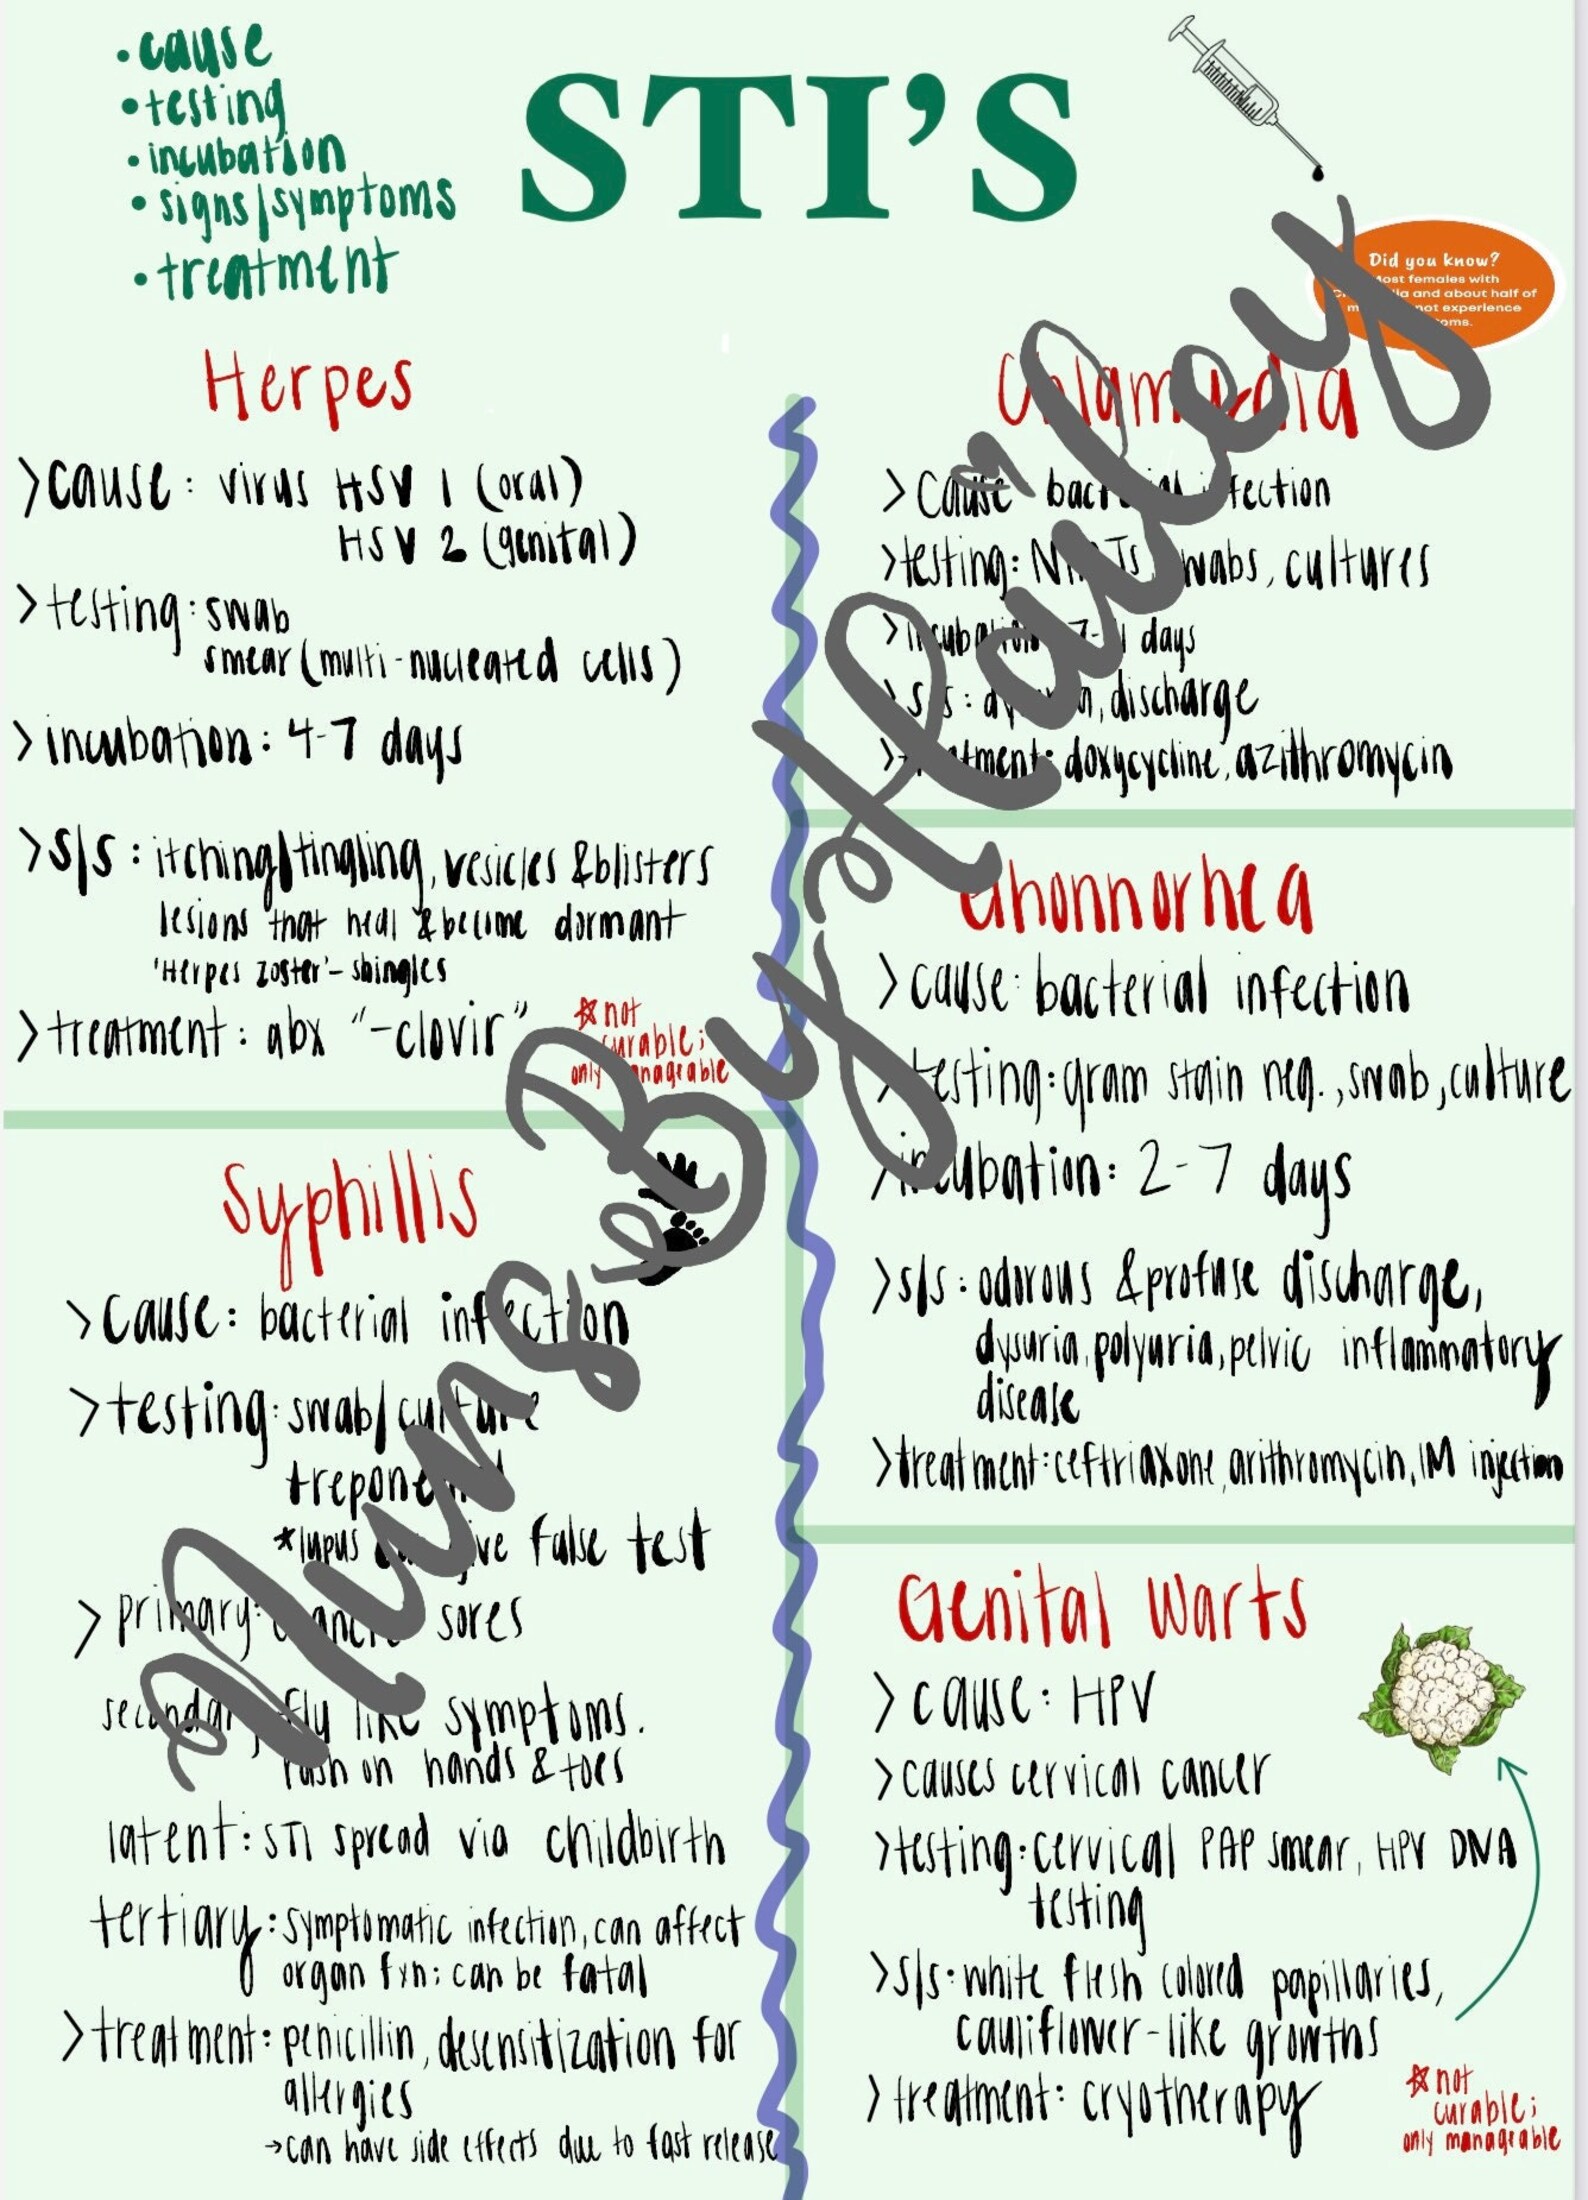 • cause
• testing
• incubation
• signs/symptoms
• treatment
STI'S
Did you know?
Most females with
and about half of
not experience
Herpes
>cause: virus HSV 1 (oral)
HSV 2 (genital)
>testing: swab
smear (multi-nucleated cells)
>incubation: 4-7 days
>s/s: itching/tingling, vesicles & blisters
lesions that heal & become dormant
'Herpes zoster' - shingles
>treatment: abx "-clovir"
*not
curable;
only manageable
Syphillis
>cause: bacterial infection
>testing: swab/culture
*lupus give false test
>primary: sores
secondary: fly like symptoms.
rash on hands & toes
latent: STI spread via childbirth
tertiary: symptomatic infection, can affect
organ fxn; can be fatal
>treatment: penicillin, desensitization for
allergies
→can have side effects due to fast release
Chlamydia
>Cause bacterial infection
>testing: swabs, cultures
>incubation: days
>s/s: discharge
>treatment: doxycycline, azithromycin
Ghonnorhea
>cause: bacterial infection
>testing: gram stain neg., swab, culture
>incubation: 2-7 days
>s/s: odorous & profuse discharge,
dysuria, polyuria, pelvic inflammatory
disease
>treatment: ceftriaxone, arithromycin, IM injection
Genital Warts
>cause: HPV
>causes cervical cancer
>testing: cervical PAP smear, HPV DNA
testing
>s/s: white flesh colored papillaries,
cauliflower-like growths
>treatment: cryotherapy
*not
curable;
only manageable
NurseByHailey